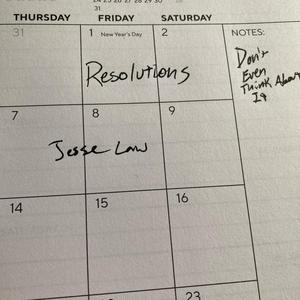 24 25 26 27 28 29 30
31
THURSDAY FRIDAY SATURDAY
31 1 New Year's Day 2 NOTES:
Resolutions
Don't
Even
Think About
It
7 8 9
Jesse Law
14 15 16
23